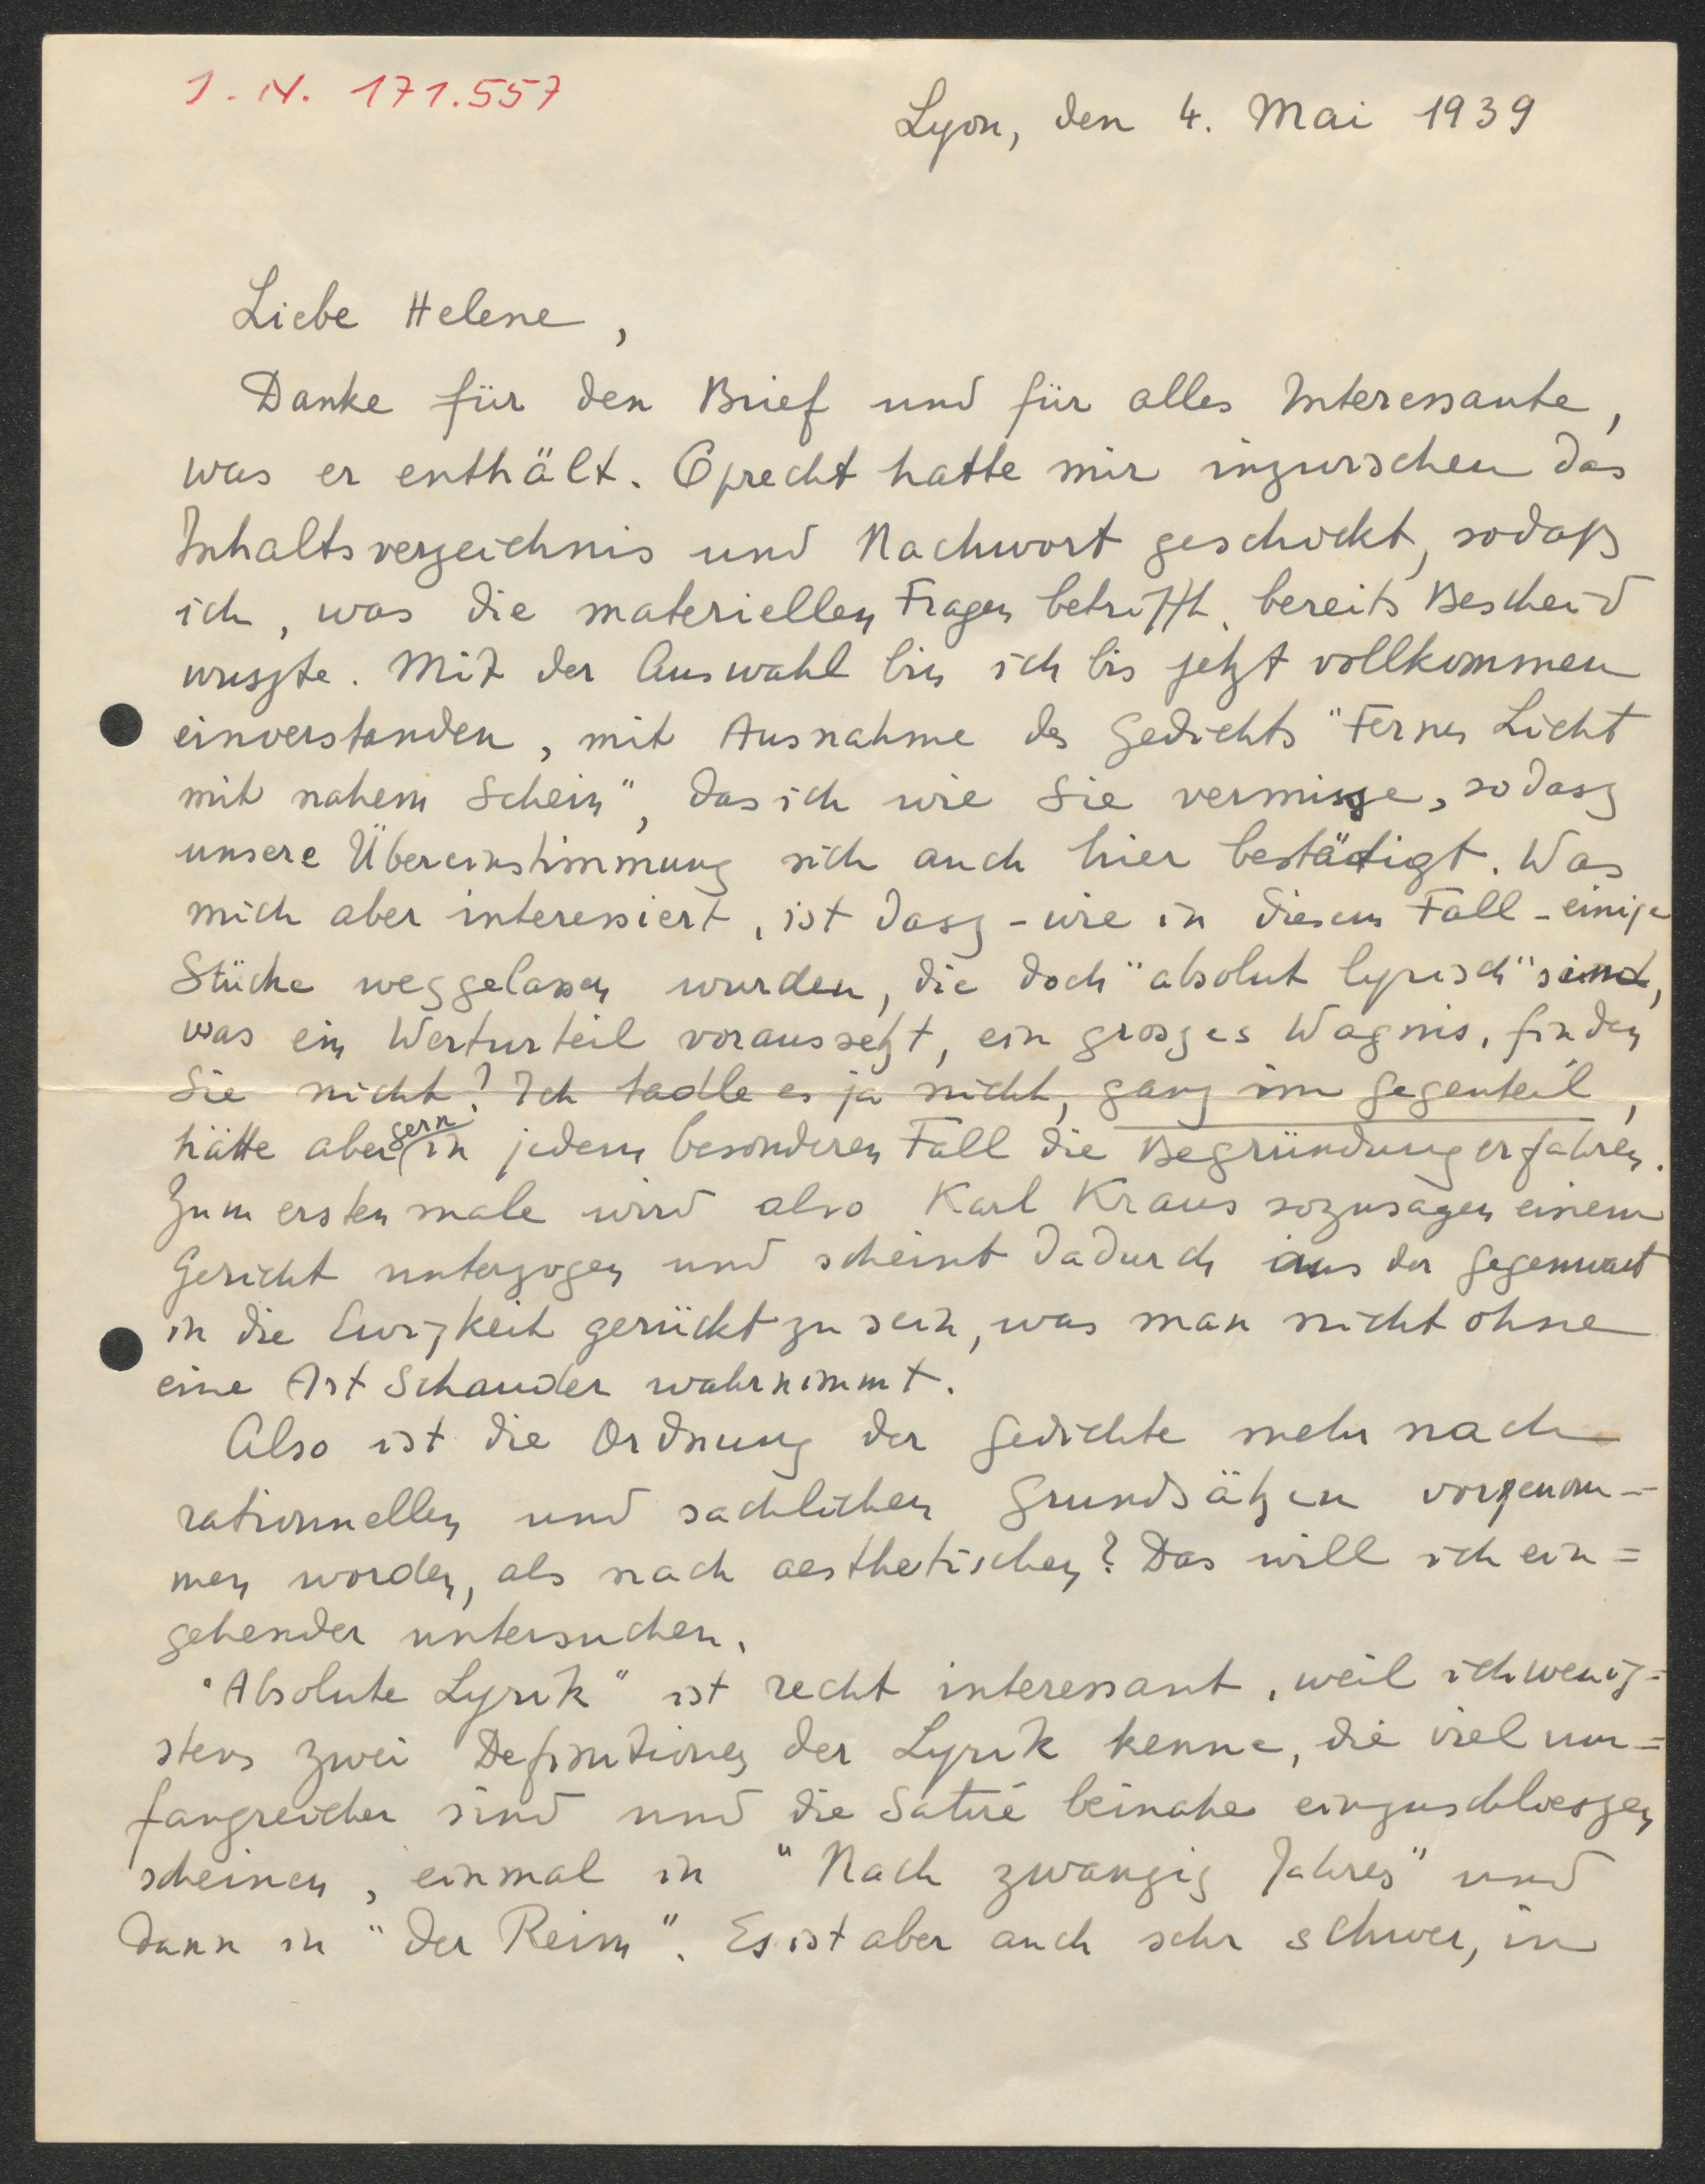 J. N. 171.557
Lyon, den 4. Mai 1939
Liebe Helene,
Danke für den Brief und für alles Interessante,
was er enthält. Oprecht hatte mir inzwischen das
Inhaltsverzeichnis und Nachwort geschickt, sodaß
ich, was die materiellen Fragen betrifft, bereits Bescheid
wuszte. Mit der Auswahl bin ich bis jetzt vollkommen
einverstanden, mit Ausnahme des Gedichts "Fernes Licht
mit nahem Schein", das ich wie Sie vermisse, sodasz
unsere Übereinstimmung sich auch hier bestätigt. Was
mich aber interessiert, ist dasz - wie in diesem Fall - einige
Stücke weggelassen wurden, die doch "absolut lyrisch" sind,
was ein Werturteil voraussetzt, ein groszes Wagnis, finden
Sie nicht? Ich tadle es ja nicht, ganz im Gegenteil,
hätte aber gern in jedem besonderen Fall die Begründung erfahren.
Zum ersten male wird also Karl Kraus sozusagen einem
Gericht unterzogen und scheint dadurch aus der Gegenwart
in die Ewigkeit gerückt zu sein, was man nicht ohne
eine Art Schauder wahrnimmt.
Also ist die Ordnung der Gedichte mehr nach
rationnellen und sachlichen Grundsätzen vorgenom-
men worden, als nach aesthetischen? Das will ich ein=
gehender untersuchen.
"Absolute Lyrik" ist recht interessant, weil ich wenig=
stens zwei Definitionen der Lyrik kenne, die viel um=
fangreicher sind und die Satire beinahe einzuschlieszen
scheinen, einmal in "Nach zwanzig Jahren" und
dann in "Der Reim". Es ist aber auch sehr schwer, in